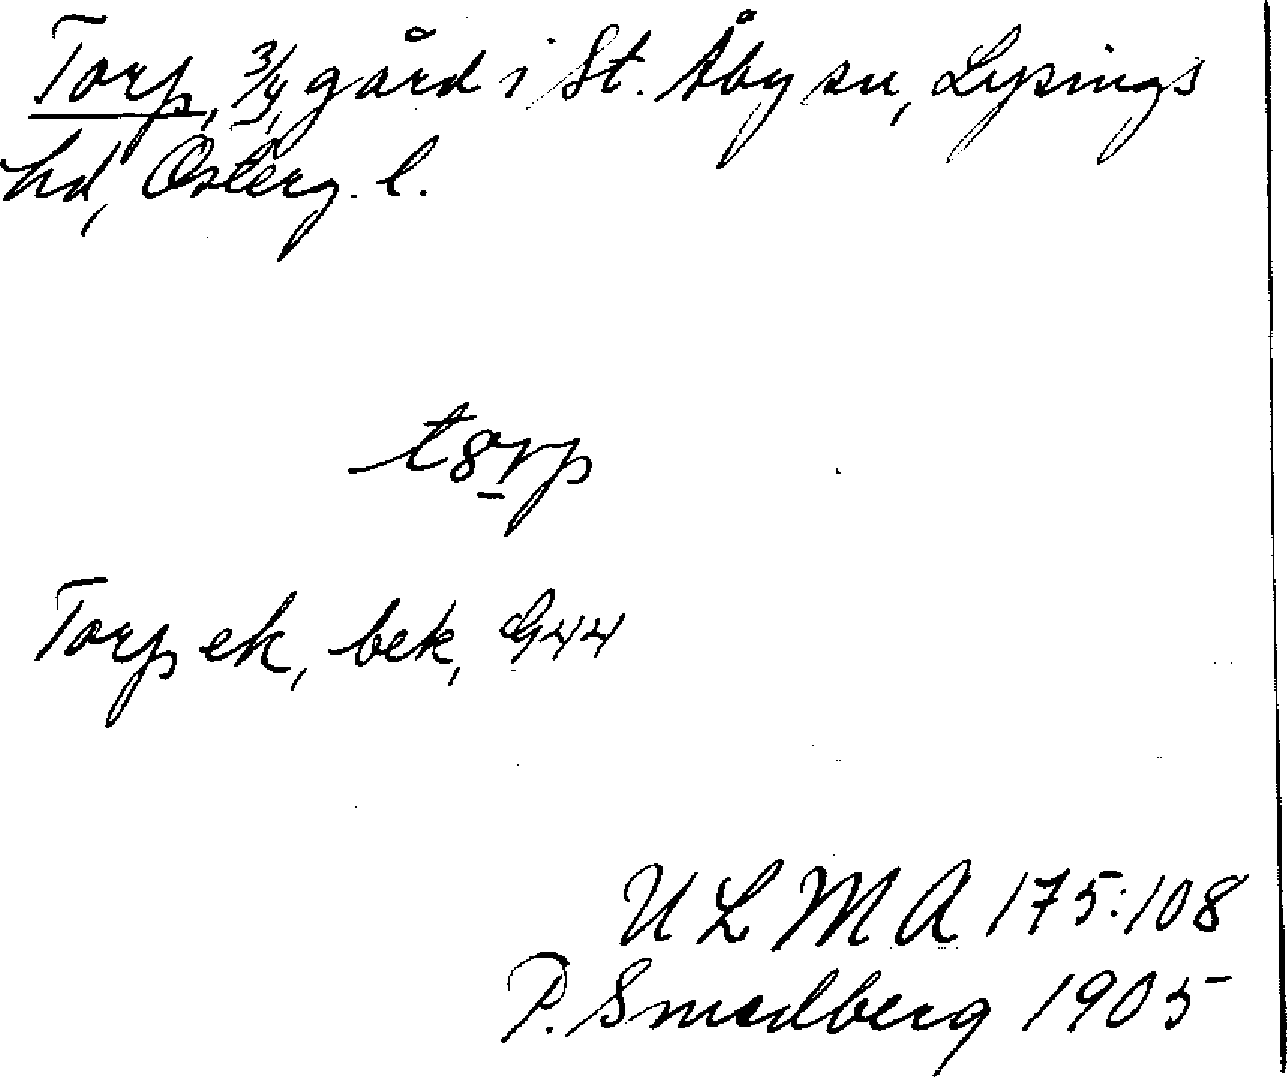 Torp, 3/4, gård i St. Åby sn, Lysings
hd, Österg. l.
t8rp
Torp ek, bek, G44
ULMA 175:108
P. Smedberg 1905